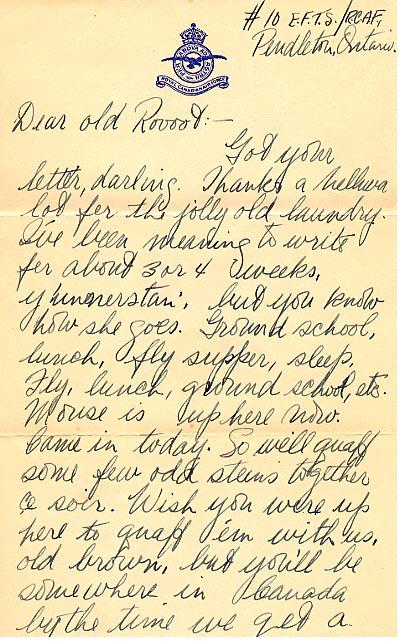 #10 E.F.T.S./RCAF,
Pendleton, Ontario.
ROYAL CANADIAN AIR FORCE
Dear old Rovoot:-
Got your
letter, darling. Thanks a helluva
lot fer the jolly old laundry.
I've been meaning to write
fer about 3 or 4 weeks,
y'unnerstan', but you know
how she goes. Ground school,
lunch, fly supper, sleep.
Fly, lunch, ground school, etc.
Mouse is up here now.
Came in today. So well quaff
some few odd steins together
ce soir. Wish you were up
here to quaff 'em with us,
old brown, but you'll be
somewhere in Canada
by the time we get a